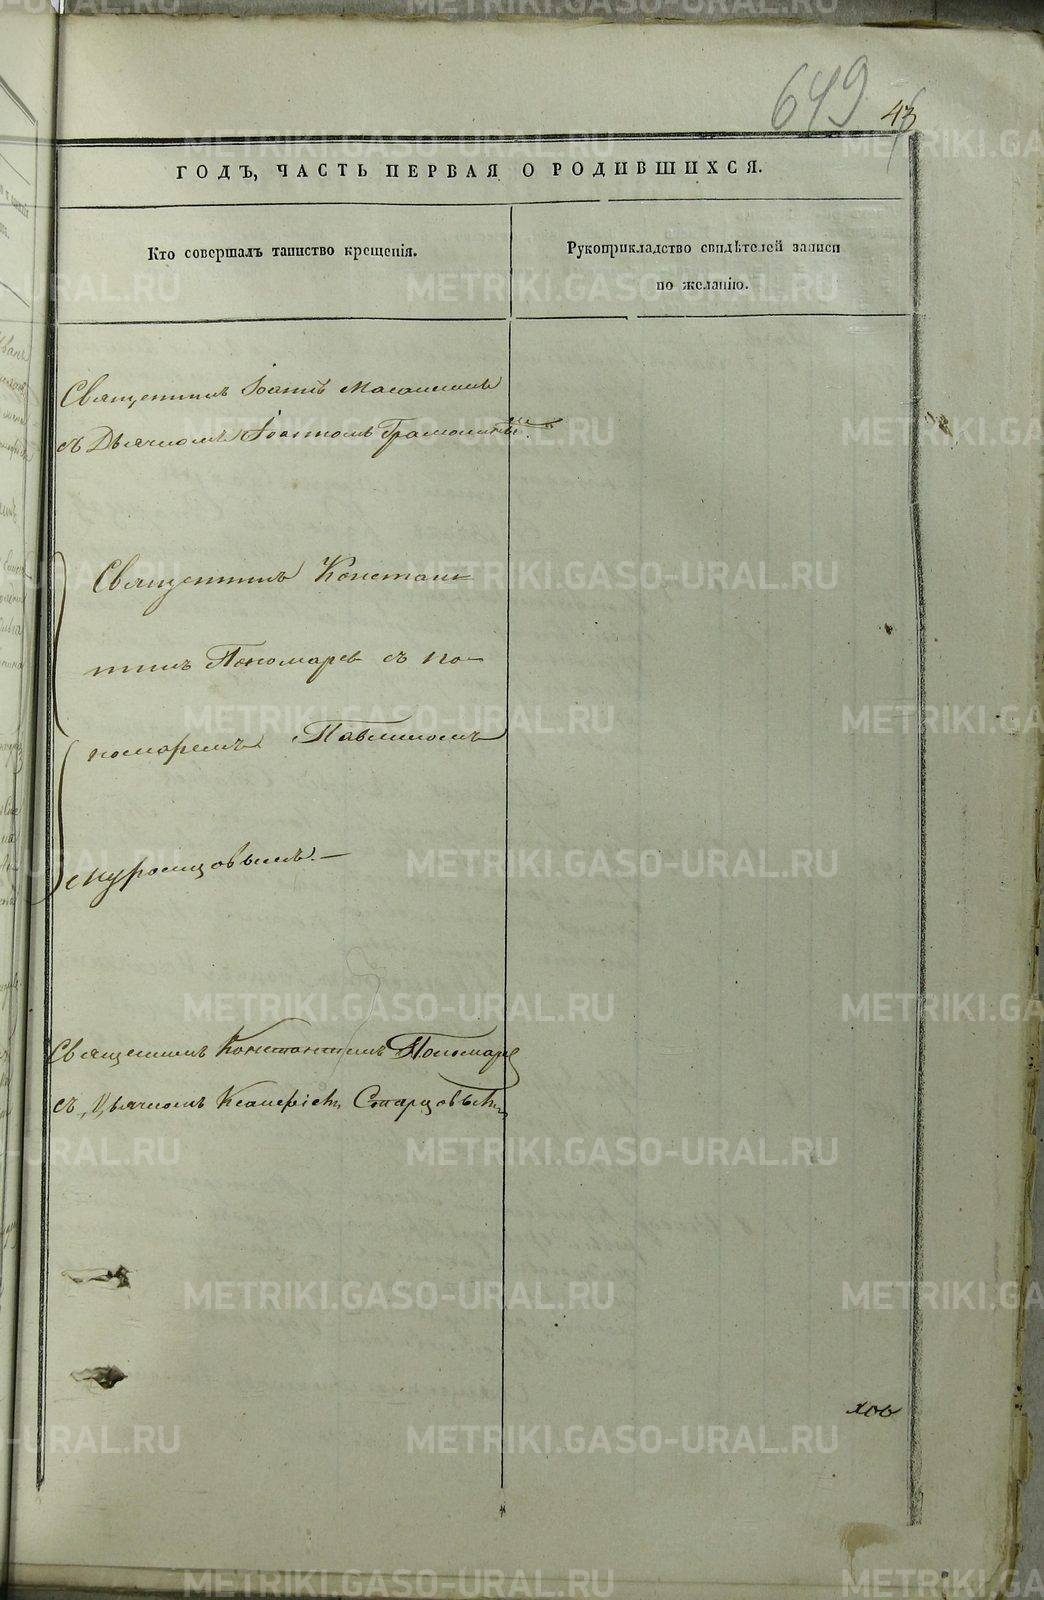 649
43
ГОДЪ, ЧАСТЬ ПЕРВАЯ О РОДИВШИХСЯ.
Кто совершалъ таинство крещенія.
Рукоприкладство свидѣтелей записи
по желанію.
Священникъ Іоаннъ
съ Дьячкомъ Іоанномъ
Священникъ Констан=
тинъ Пономарев съ по-
номаремъ Павлиномъ
Священникъ Константинъ Пономарев
съ Дьячкомъ Старцовымъ
METRIKI.GASO-URAL.RU